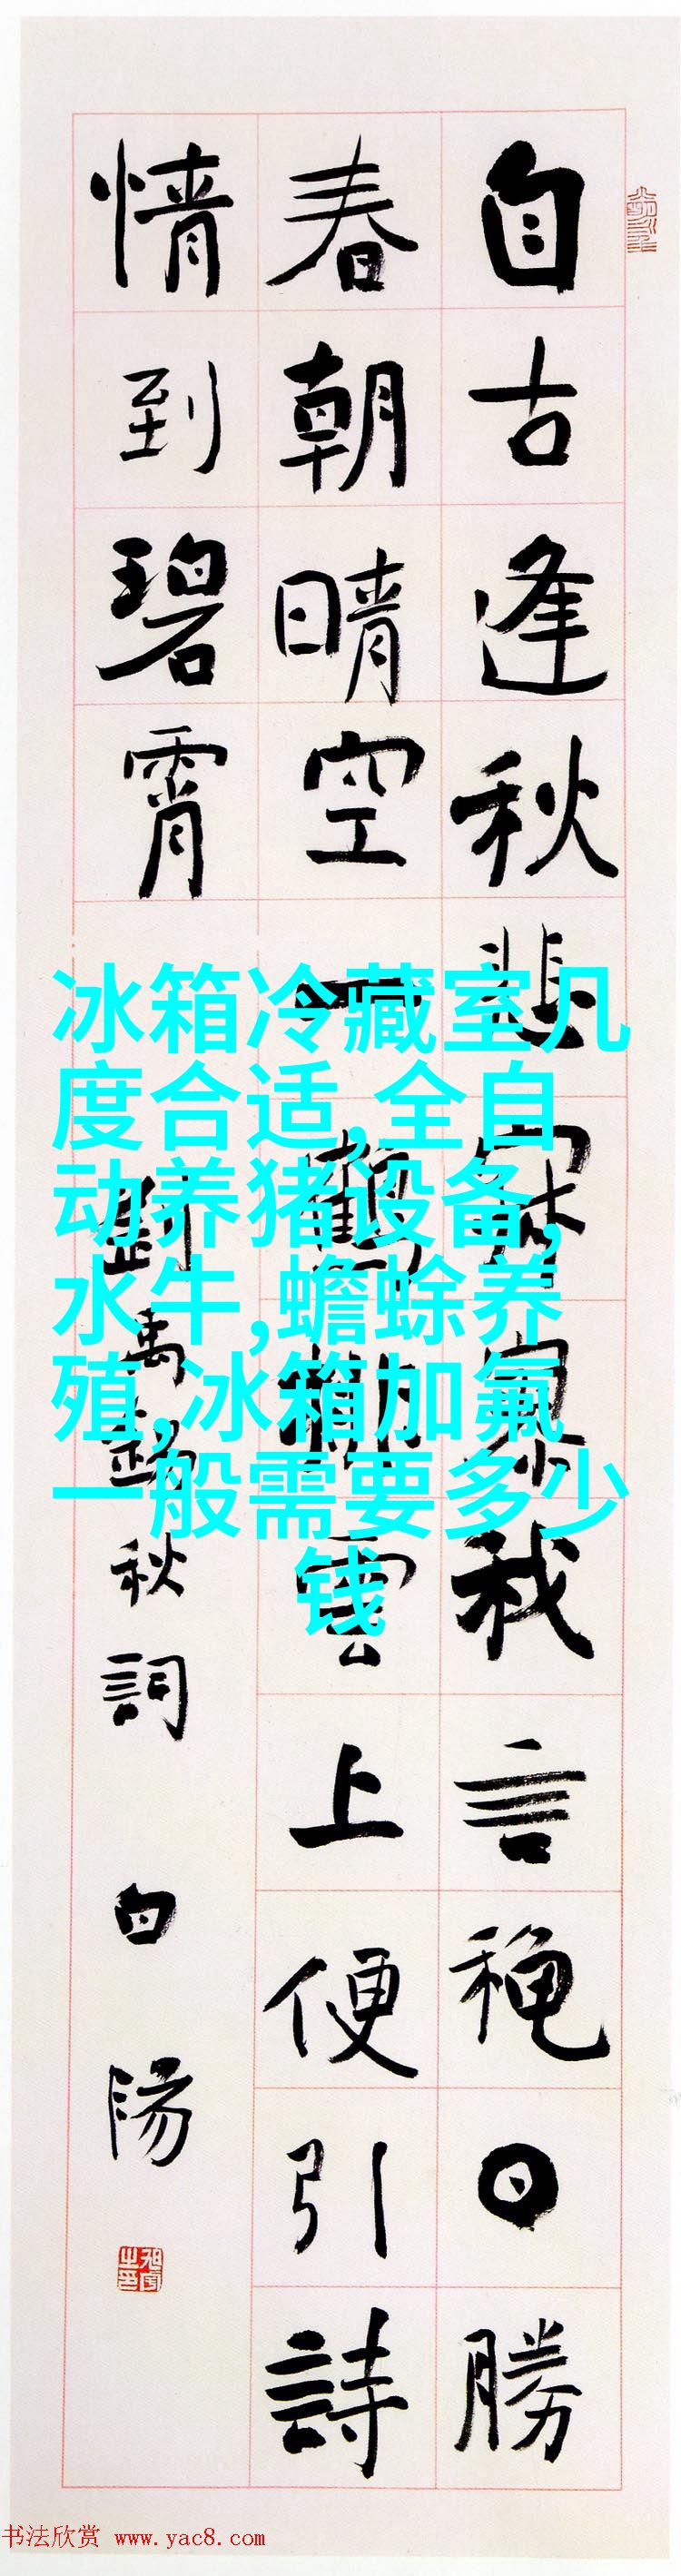 自古逢秋悲寂寥我言穐日勝
春朝晴空一鶴排雲上便引詩
情到碧霄
劉禹錫秋詞 白陽
冰箱冷藏室几
度合适,全自
动养猪设备,
水牛,蟾蜍养
殖,冰箱加氟
一般需要多少
钱
书法欣赏 www.yac8.com